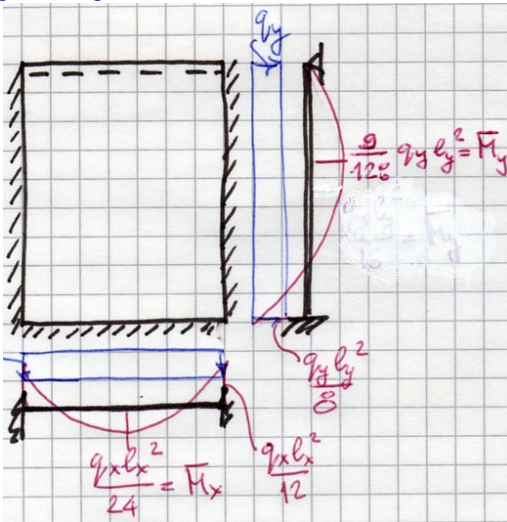 qy
9/128 qy ly² = M̄y
qy ly²/8
qx lx²/24 = M̄x
qx lx²/12